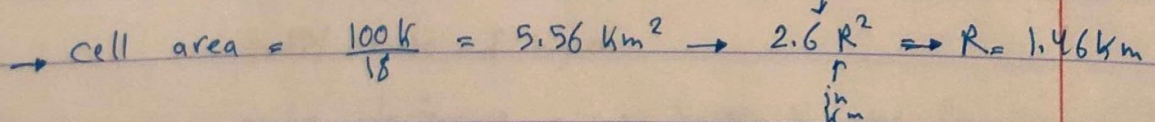 → cell area = 100K / 18 = 5.56 Km² → 2.6 R² ⇒ R = 1.46 Km
↑
in
Km